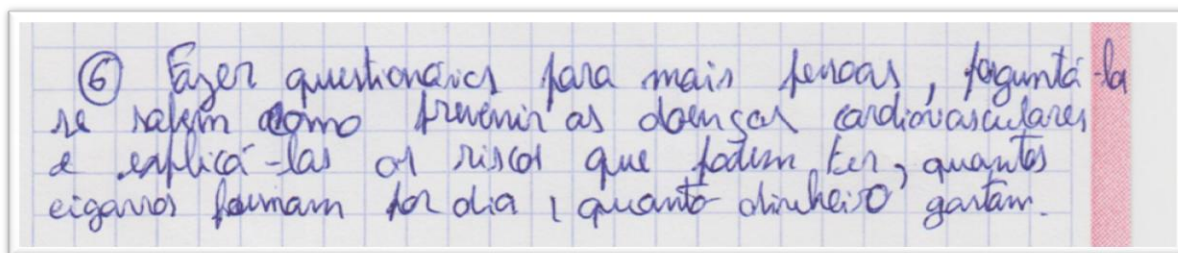 ⑥ Fazer questionários para mais pessoas, preguntá-la
se sabem como prevenir as doenças cardiovasculares
e explicá-las os riscos que podem ter, quantos
cigarros fumam por dia, quanto dinheiro gastam.